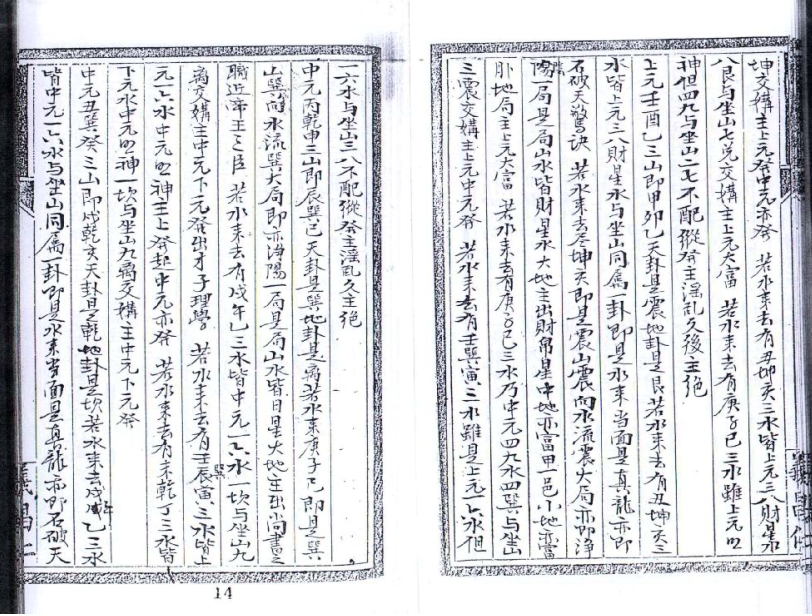 坤交媾主上元發中元亦發 若水來去有丑坤亥三水皆上元三八財星第
八艮与坐山七兌交媾主上元大富 若水來去有庚子巳三水雖上元四
神但四九与坐山二七不配縱發主淫乱久後主絕
上元壬酉乙三山即甲卯乙天卦是震地卦是艮若水來去有丑坤亥三
水皆上元三八財星水与坐山同属一卦即是水來当面是真龍亦即
石破天驚訣 若水來去是坤亥即是震山震向水流震大局亦即淨
陽一局是局山水皆財星水大地主出財帛星中地亦富甲一邑小地亦富
卦地局主上元大富 若水來去有庚子巳三水乃中元四九水四巽与坐山
三震交媾主上元中元發 若水來去有壬巽寅三水雖是上元一六水但
一六水与坐山三八不配縱發主淫乱久主絕
中元丙乾申三山即辰巽巳天卦是巽地卦是离若水來庚子巳即是巽
山巽向水流巽大局即亦淨陽一局是局山水皆日星大地主出尚書之
職近帝王之臣 若水來去有戌午乙三水皆中元一六水一坎与坐山九
离交媾主中元下元發出才子理學 若水來去有壬辰寅三水皆上
巽
元一六水中元四神主上發起中元亦發 若水來去有未乾丁三水皆
下元水中元四神一坎与坐山九离交媾主中元下元發
中元丑巽癸三山即戌乾亥天卦是乾地卦是坎若水來去戌午乙三水
皆中元一六水与坐山同属一卦即是水來当面是真龍亦即石破天
14